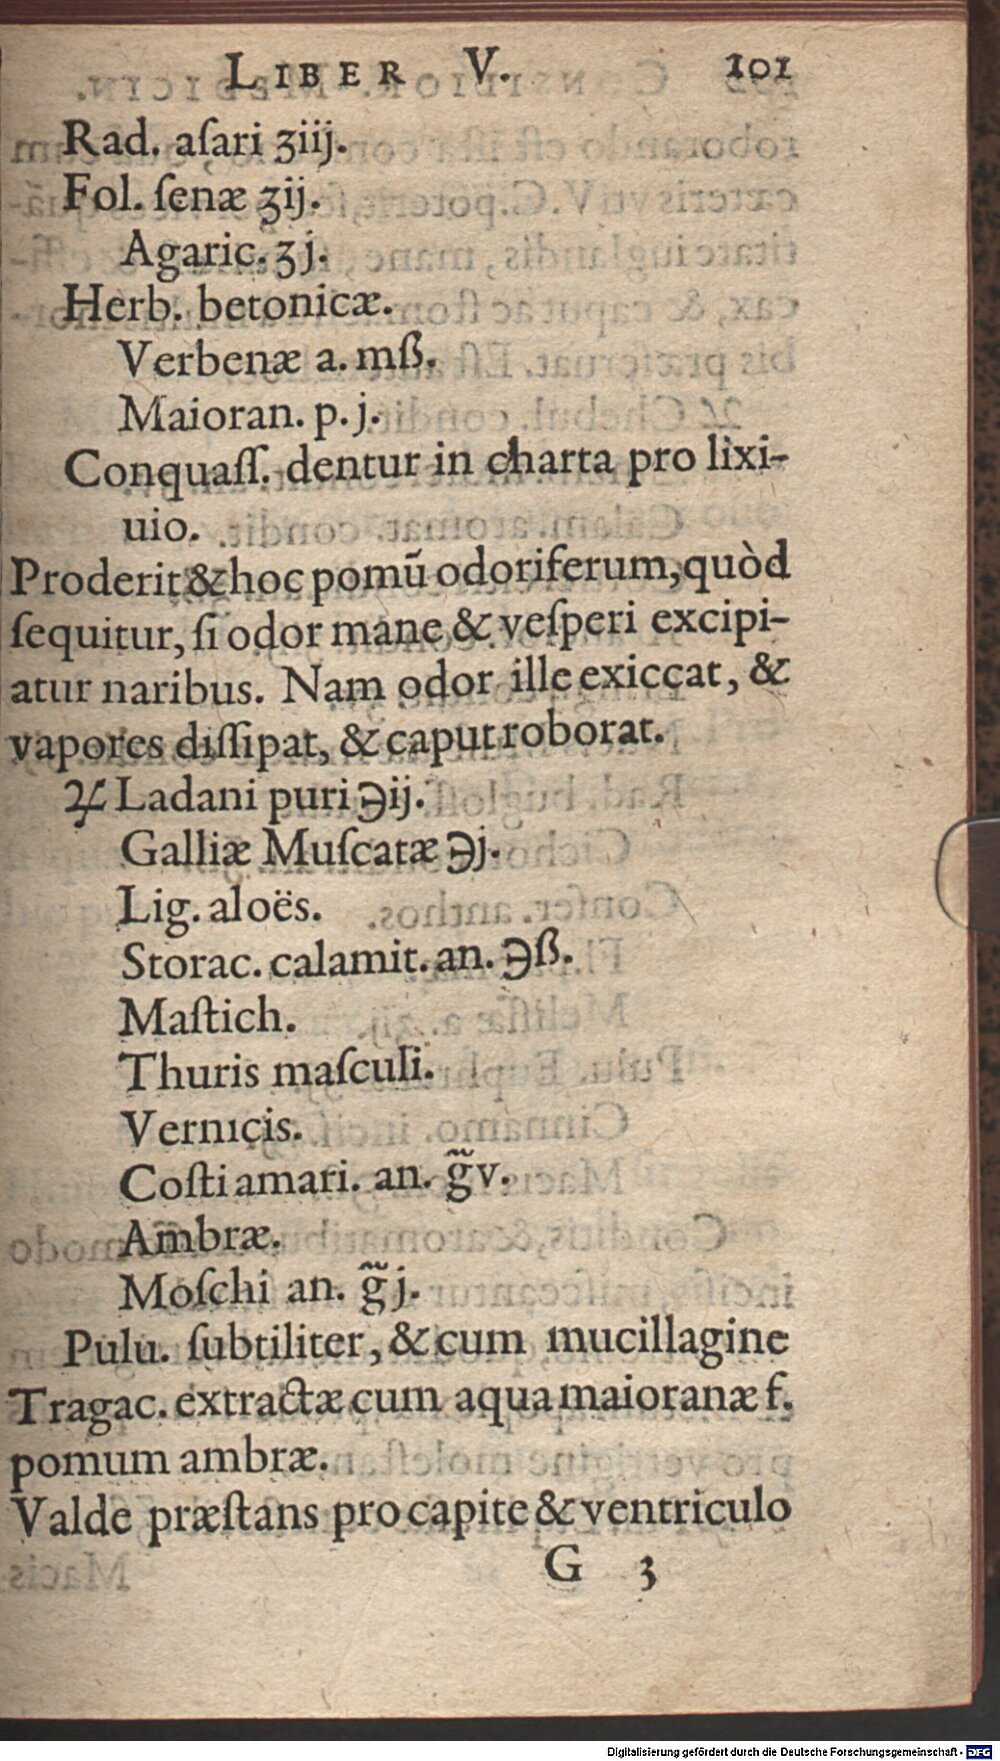 LIBER V. 101
Rad. aſari ʒiij.
Fol. ſenæ ʒij.
Agaric. ʒj.
Herb. betonicæ.
Verbenæ a. mß.
Maioran. p. j.
Conquaſſ. dentur in charta pro lixi-
uio.
Proderit & hoc pomũ odoriferum, quòd
ſequitur, ſi odor mane & veſperi excipi-
atur naribus. Nam odor ille exiccat, &
vapores diſſipat, & caput roborat.
♃ Ladani puri ℈ij.
Galliæ Muſcatæ ℈j.
Lig. aloës.
Storac. calamit. an. ℈ß.
Maſtich.
Thuris maſculi.
Vernicis.
Coſti amari. an. g̃v.
Ambræ.
Moſchi an. g̃j.
Pulu. ſubtiliter, & cum mucillagine
Tragac. extractæ cum aqua maioranæ f.
pomum ambræ.
Valde præſtans pro capite & ventriculo
G 3
Macis
Digitalisierung gefördert durch die Deutsche Forschungsgemeinschaft - DFG